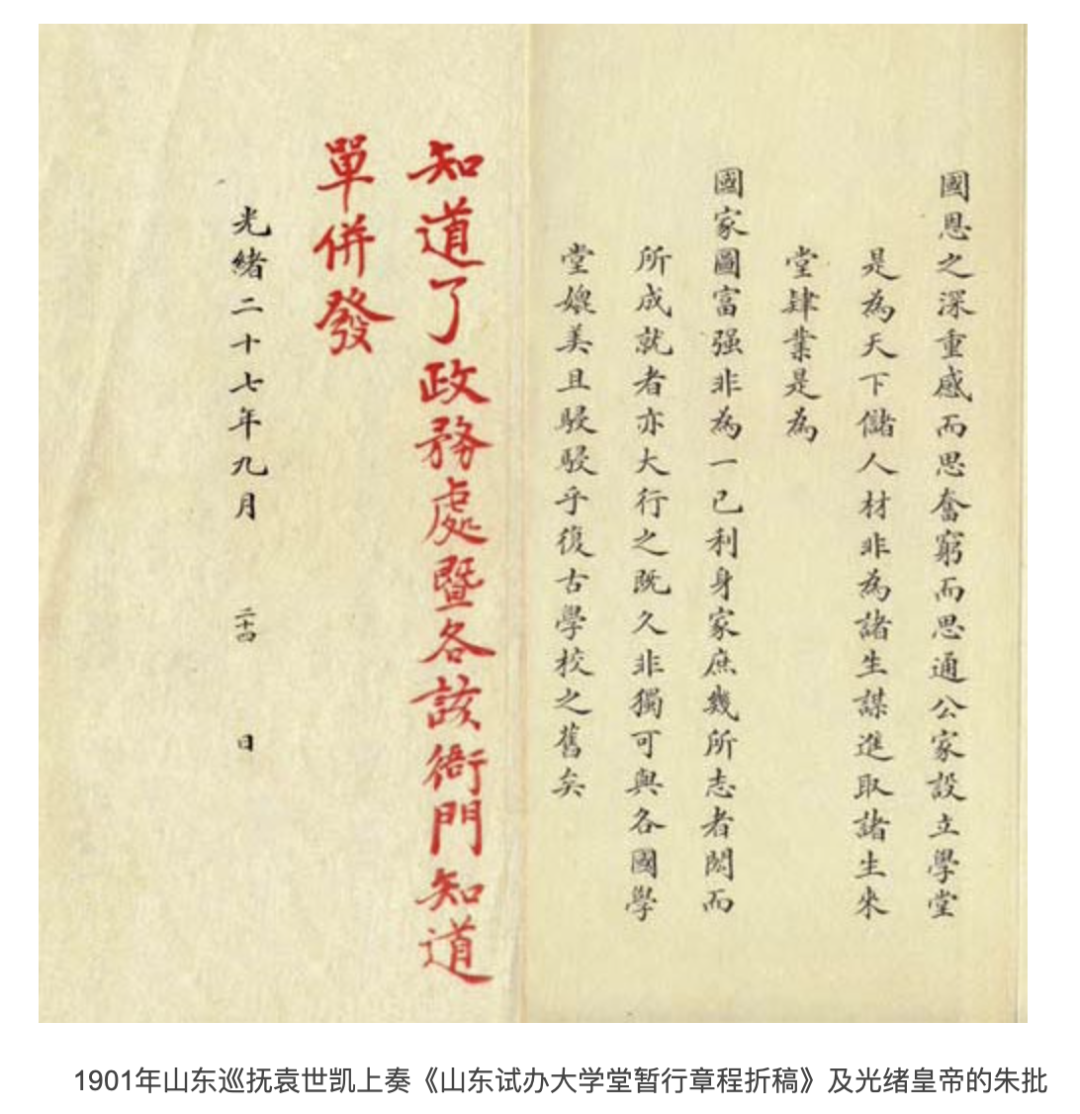 國恩之深重感而思奮窮而思通公家設立學堂
是為天下儲人材非為諸生謀進取諸生來
堂肄業是為
國家圖富强非為一已利身家庶幾所志者閎而
所成就者亦大行之既久非獨可與各國學
堂媲美且駸駸乎復古學校之舊矣
知道了政務處暨各該衙門知道
單併發
光緒二十七年九月 二十四 日
1901年山东巡抚袁世凯上奏《山东试办大学堂暂行章程折稿》及光绪皇帝的朱批